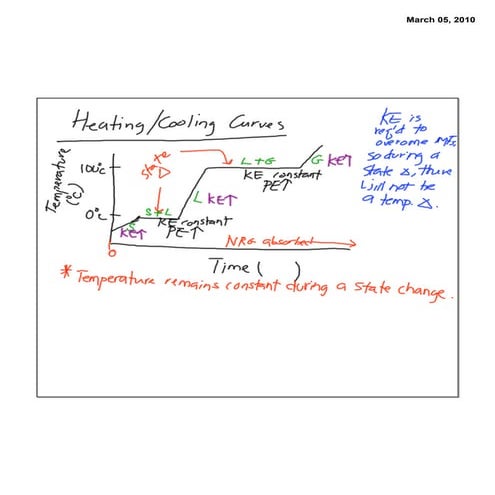 March 05, 2010
Heating/Cooling Curves
KE is
req'd to
overcome IMFs,
so during a
state Δ, there
will not be
a temp. Δ.
Temperature
(°C)
100°C
0°C
state Δ
L + G
KE constant
PE↑
G KE↑
L KE↑
S + L
KE constant
PE↑
S
KE↑
NRG absorbed
0
Time ( )
* Temperature remains constant during a state change.